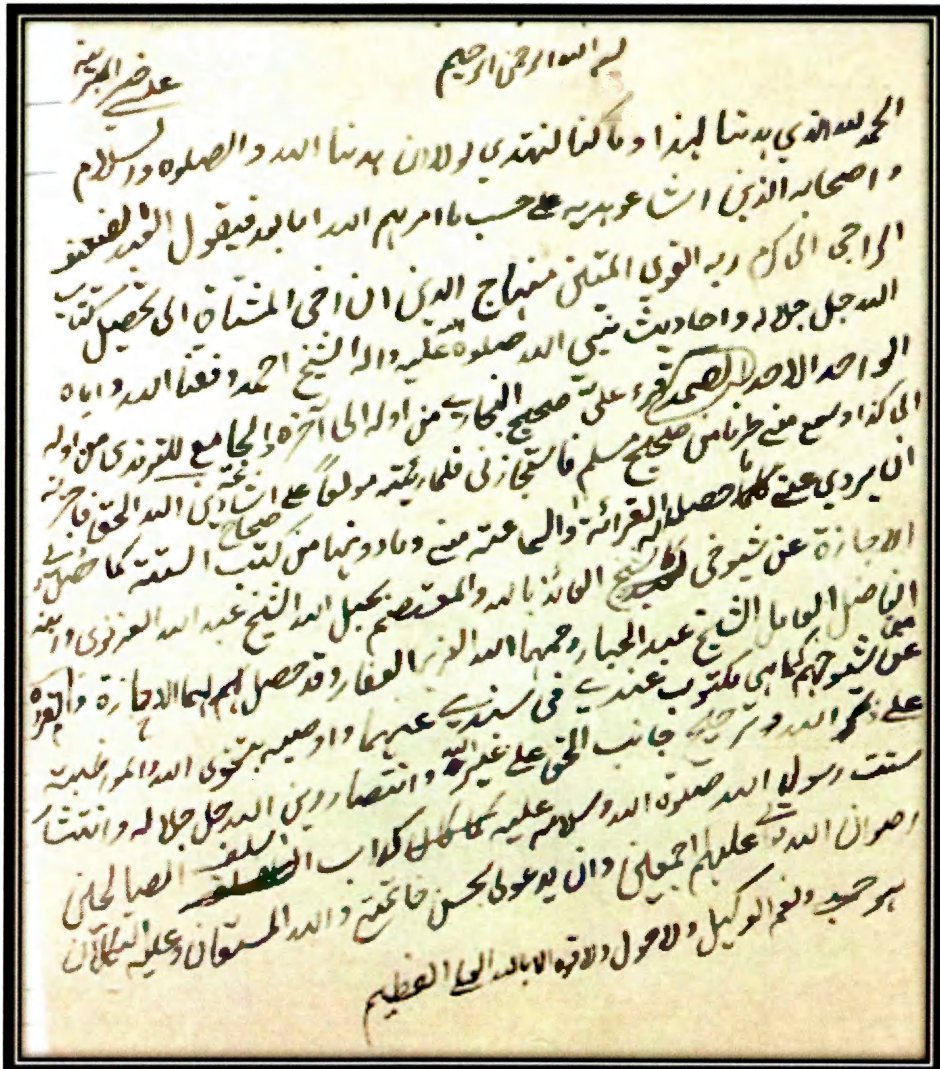 بسم الله الرحمن الرحيم
الحمد لله الذي هدىنا لهذا وما كنا لنهتدي لولا ان هدىنا الله والصلوة والسلام على خير البرية
واصحابه الذين اشاعو هديه على حسب ما امرهم الله اما بعد فيقول العبد الضعيف
الراجى الى كرم ربه القوى المتين منهاج الدين ان اخى المشتاق الى تحصيل كتاب
الله جل جلاله واحاديث نبيى الله صلوة الله عليه واله الشيخ احمد وفقنا الله واياه
الواحد الاحد الصمد قرء على صحيح البخاري من اوله الى آخره والجامع للترمذى من اوله
الى كذا وسمع منى طرفا من صحيح مسلم فاستجازنى فلما رئيته مولعا على اشاعة دين الله الحق فاجزته
ان يروي عنى كلما حصل له القرائة والسماعته منى وما دونها من كتب صحاح الستة كما حصل لى
الاجازة عن شيوخى الشيخ العائذ بالله والمعتصم بحبل الله الشيخ عبد الله الغزنوى وابنه
الفاضل الشيخ عبد الجبار رحمهما الله العزيز الغفار وقد حصل لهم الاجازة والقراءة
عن شيوخهم كما هى مكتوب عندي فى سندي عنهما واوصيه بتقوى الله والمواظبة
على ذكر الله وترجيح جانب الحق على غيره وانتصار دين الله جل جلاله وانتشار
سنت رسول الله صلوة الله وسلامه عليه كما كان داب السلف الصالحين
رضوان الله عليهم اجمعين وان يدعو لى بحسن خاتمتى والله المستعان وعليه التكلان
هو حسبى ونعم الوكيل ولا حول ولا قوة الا بالله العلى العظيم